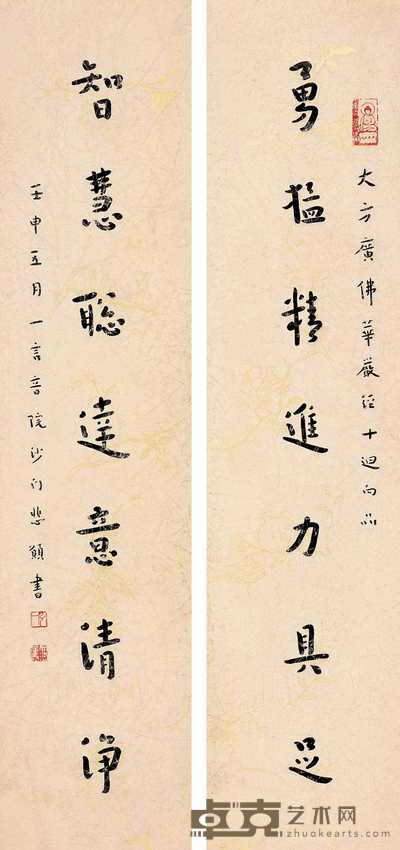 大方廣佛華嚴經十迴向品
勇猛精進力具足
智慧聰達意清淨
壬申五月一言音院沙門悲願書
卓克艺术网
www.zhuokearts.com